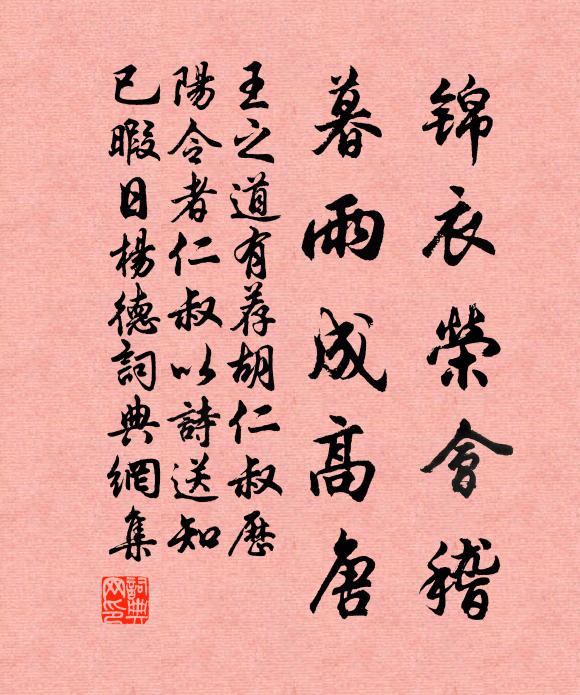 锦衣榮會稽
暮雨成高唐
王之道有荐胡仁叔歷
陽令者仁叔以詩送知
已暇日楊德詞典網集
詞典网印